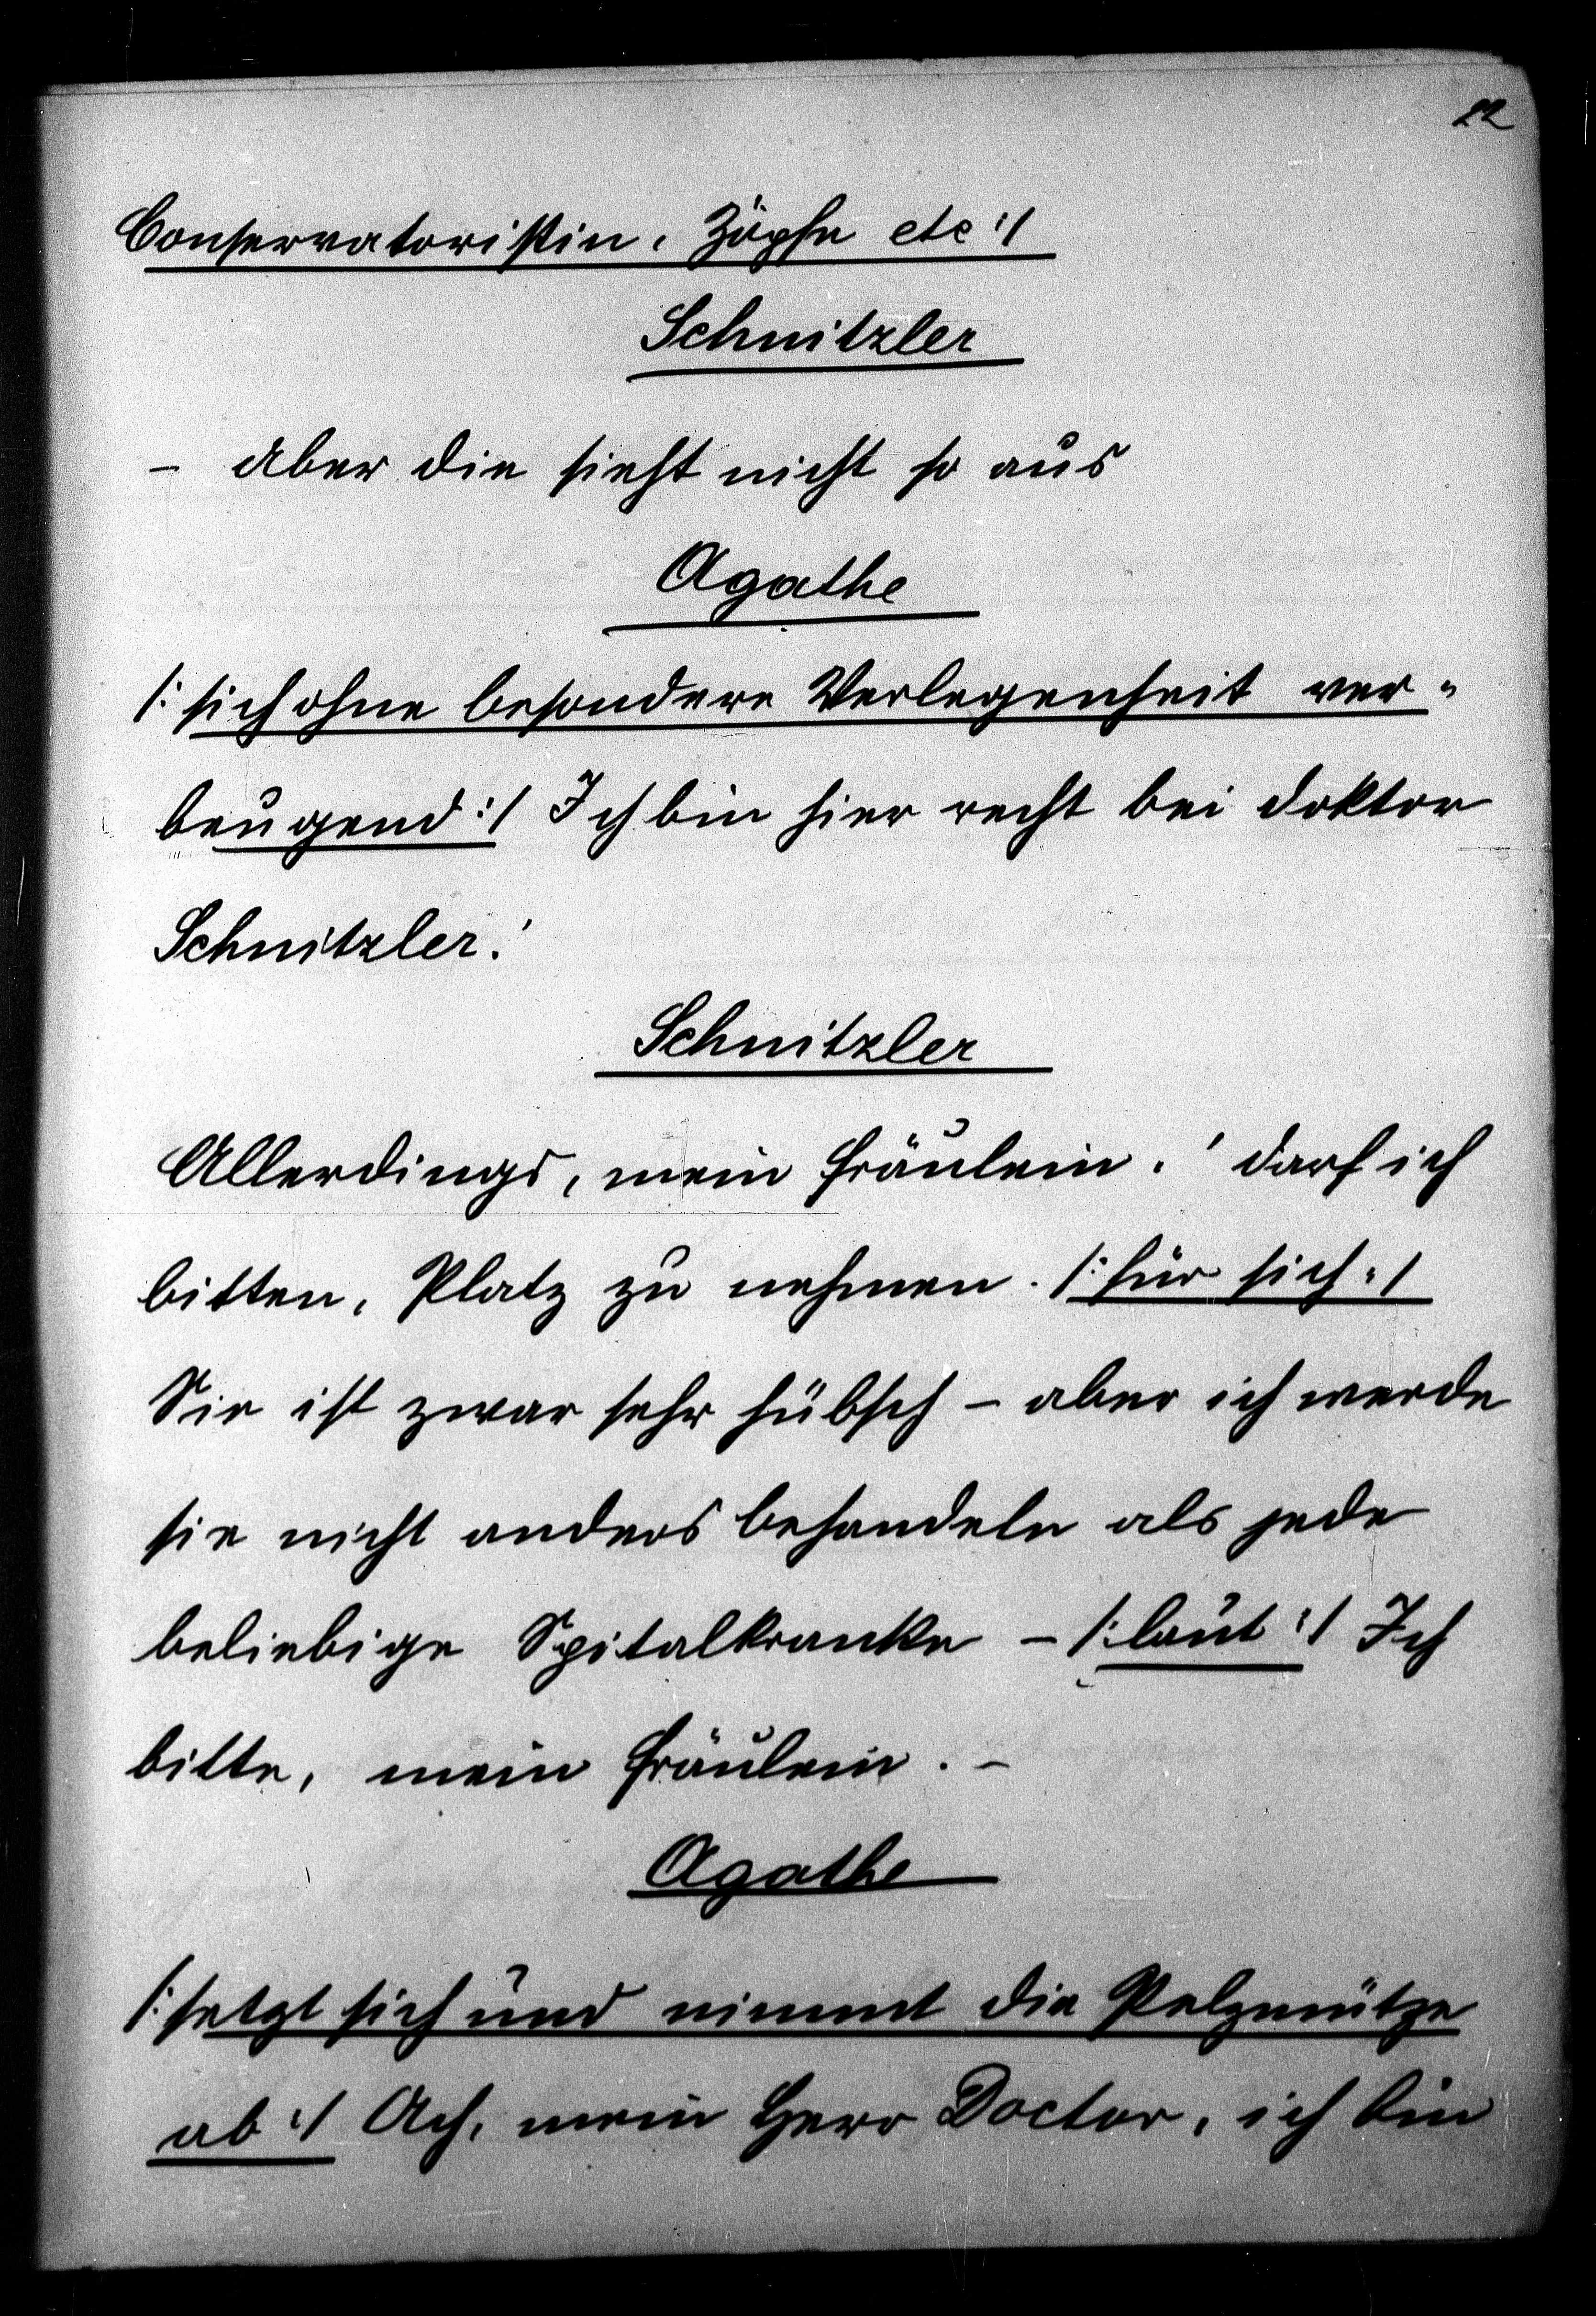 22
Conservatoristin, Zöpfe etc :/
Schnitzler
– Aber die sieht nicht so aus
Agathe
/: sich ohne besondere Verlegenheit ver-
beugend :/ Ich bin hier recht bei Doktor
Schnitzler!
Schnitzler
Allerdings, mein Fräulein.! darf ich
bitten, Platz zu nehmen. /: für sich :/
Sie ist zwar sehr hübsch – aber ich werde
sie nicht anders behandeln als jede
beliebige Spitalkranke – /: laut :/ Ich
bitte, mein Fräulein. –
Agathe
/: setzt sich und nimmt die Pelzmütze
ab :/ Ach, mein Herr Doctor, ich bin